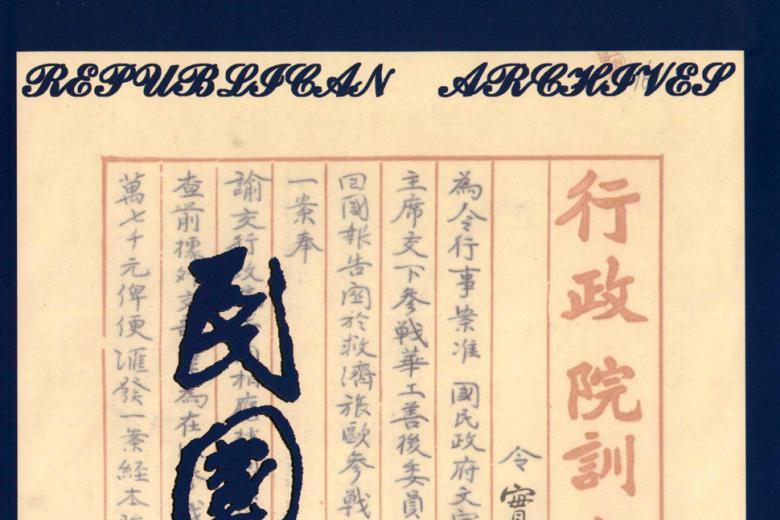 REPUBLICAN ARCHIVES
行政院訓
令
為令行事案准 國民政府文官
主席交下參戰華工善後委員
回國報告關於救濟旅歐參戰
一案奉
諭交行政
查前據
萬七千元俾便滙發一案經本
民國